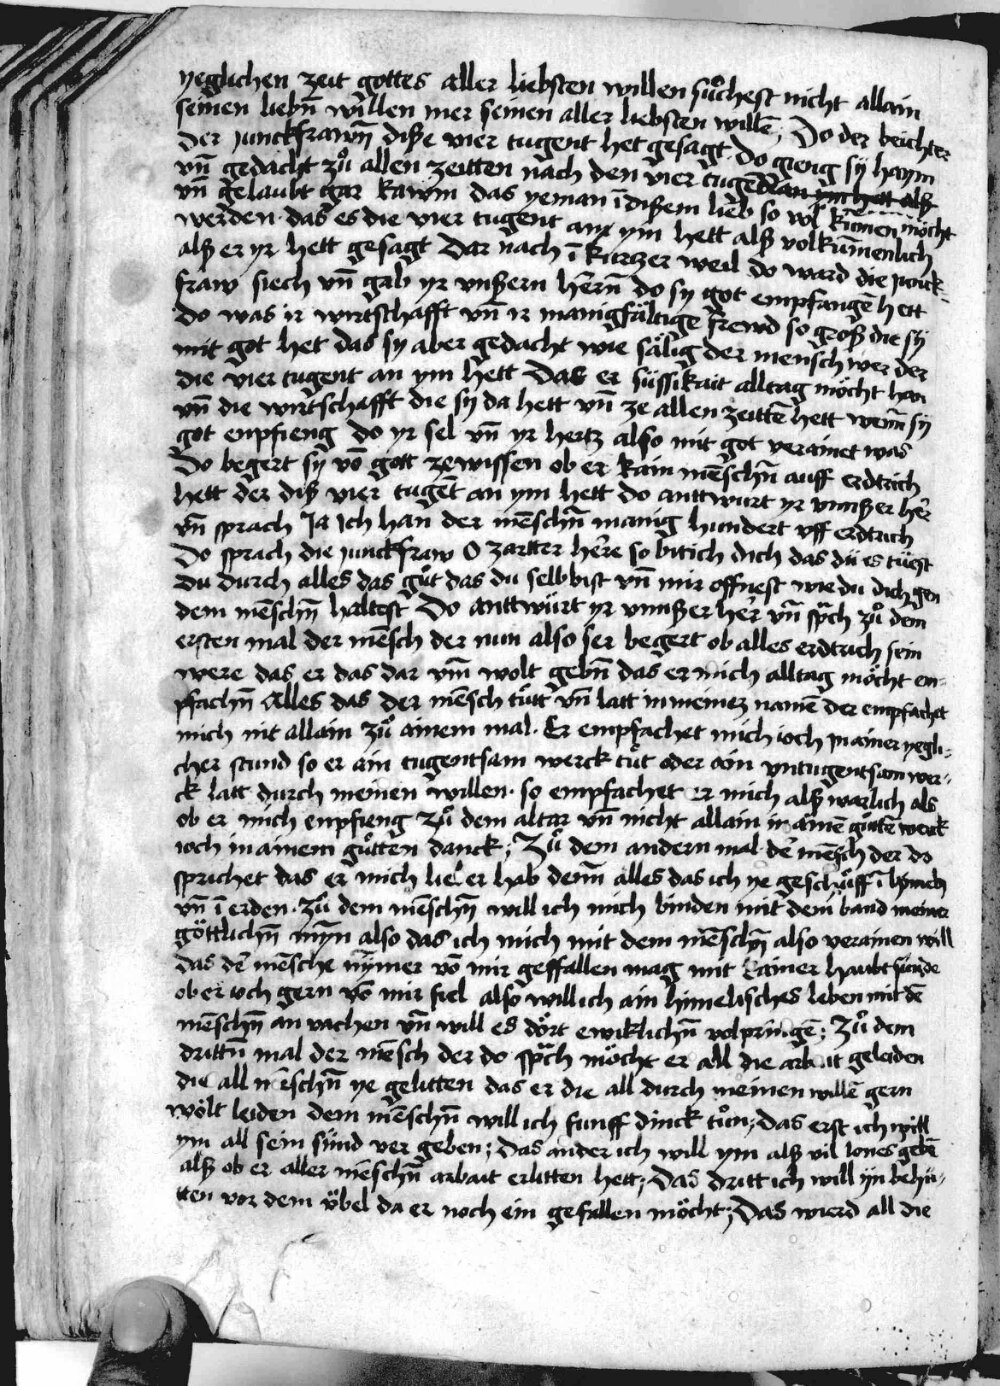 yeglichen zeit gottes aller liebsten willen sůchest nicht allain
seinen liebñ willen mer seinen aller liebsten willē, Do der beichter
der junckfrawñ diße vier tugent het gesagt do gieng sÿ haym
vñ gedacht zů allen zeitten nach den vier tugēden
vñ gelaubt gar kawm das yeman ī dißem lieb so vol kumen möcht
werden das es die vier tugent an ym hett alß volkumenlich
alß er yr hett gesagt Dar nach ī kurtzer weil do ward die junck-
fraw siech vñ gab yr vnßern herñ do sy got empfangē hett
Do was ir wirtschafft vñ ir manigfältige frewd so groß die sÿ
mit got het das sy aber gedacht wie sälig der mensch wer der
die vier tugent an ym hett Das er süssikait alltag möcht han
vñ die wirtschafft die sy da hett vñ ze allen zeittē hett wenn sÿ
got enpfieng do yr sel vñ yr hertz also mit got verainet was
Do begert sy vō gott ze wissen ob er kain mēschñ auff erdtrich
hett der diß vier tugēt an ym hett do anttwurt yr vnnßer her
vñ sprach Ja Ich han der mēschñ manig hundert vff erdtrich
Do sprach die junckfraw O zartter here so bit ich dich das dü es tüest
Du durch alles das gůt das du selb bist vñ mir offnest wie du dich gen
dem mēschñ haltest Do anttwürt yr vnnßer her vñ spach zů dem
ersten mal der mēsch der nun also ser begert ob alles erdtrich sein
were das er das dar vm wolt gebñ das er mich alltag möcht en-
pfachñ Alles das der mēsch tůtt vñ latt in meinez namē der empfachet
mich nit allain zů ainem mal. Er empfachet mich ioch in ainer yegli-
cher stund so er ain tugentsam werck tůt oder ain vntugentsam wer-
ck latt durch meinen willen. so empfachet er mich alß warlich als
ob er mich enpfieng zů dem altar vñ nicht allain in ainē gůtē werck
ioch in ainem gůtten danck; Zů dem andern mal dē mēsch der do
sprichet das er mich lieber hab denn alles das ich ye geschůff ī hymeln
vñ ī erden. zů dem mēschñ will ich mich binden mit dem band meiner
göttlichñ mȳn also das ich mich mit dem mēschñ also verainen will
das dē mēsche nymer vō mir geffallen mag mit kainer haubt sünde
ob er ioch gern vō mir fiel also will ich ain himelisches leben mit dē
mēschñ an vachen vñ will es dört ewiklichñ volpringē; Zů dem
drittñ mal der mēsch der do spach möcht er all die arbait geleiden
die all mēschñ ye gelitten das er die all durch meinen willē gern
wölt leiden dem mēschñ will ich funff dinck tůn; das erst ich will
ym all sein sünd ver geben; Das ander ich will ym alß vil lones gebē
alß ob er aller mēschñ arbait erlitten hett; Das dritt ich will yn behü-
tten vor dem übel da er noch ein gefallen möcht; Das wierd all die